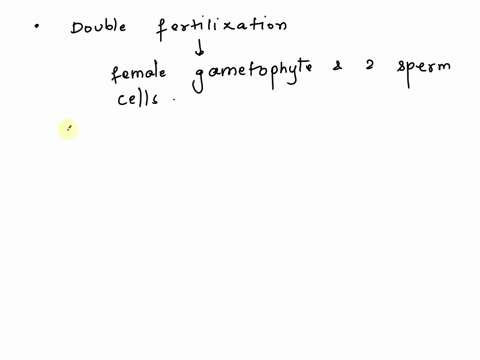 • Double fertilixation
↓
female gametophyte & 2 sperm
cells.